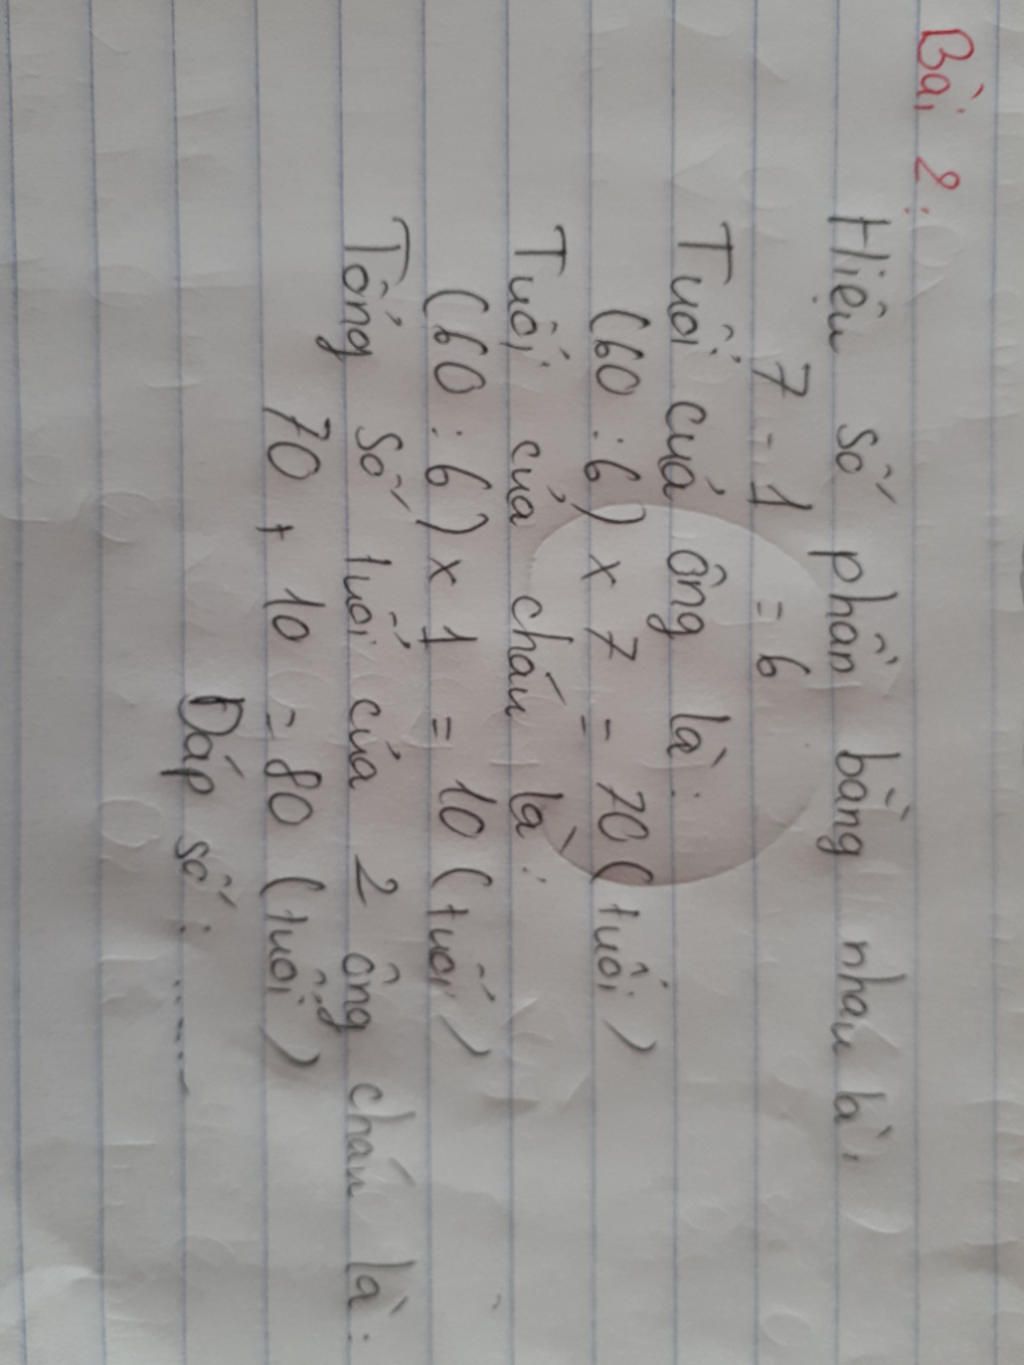 Bài 2:
Hiệu số phần bằng nhau là:
7 - 1 = 6
Tuổi của ông là:
(60 : 6) x 7 = 70 (tuổi)
Tuổi của cháu là:
(60 : 6) x 1 = 10 (tuổi)
Tổng số tuổi của 2 ông cháu là:
70 + 10 = 80 (tuổi)
Đáp số: ......